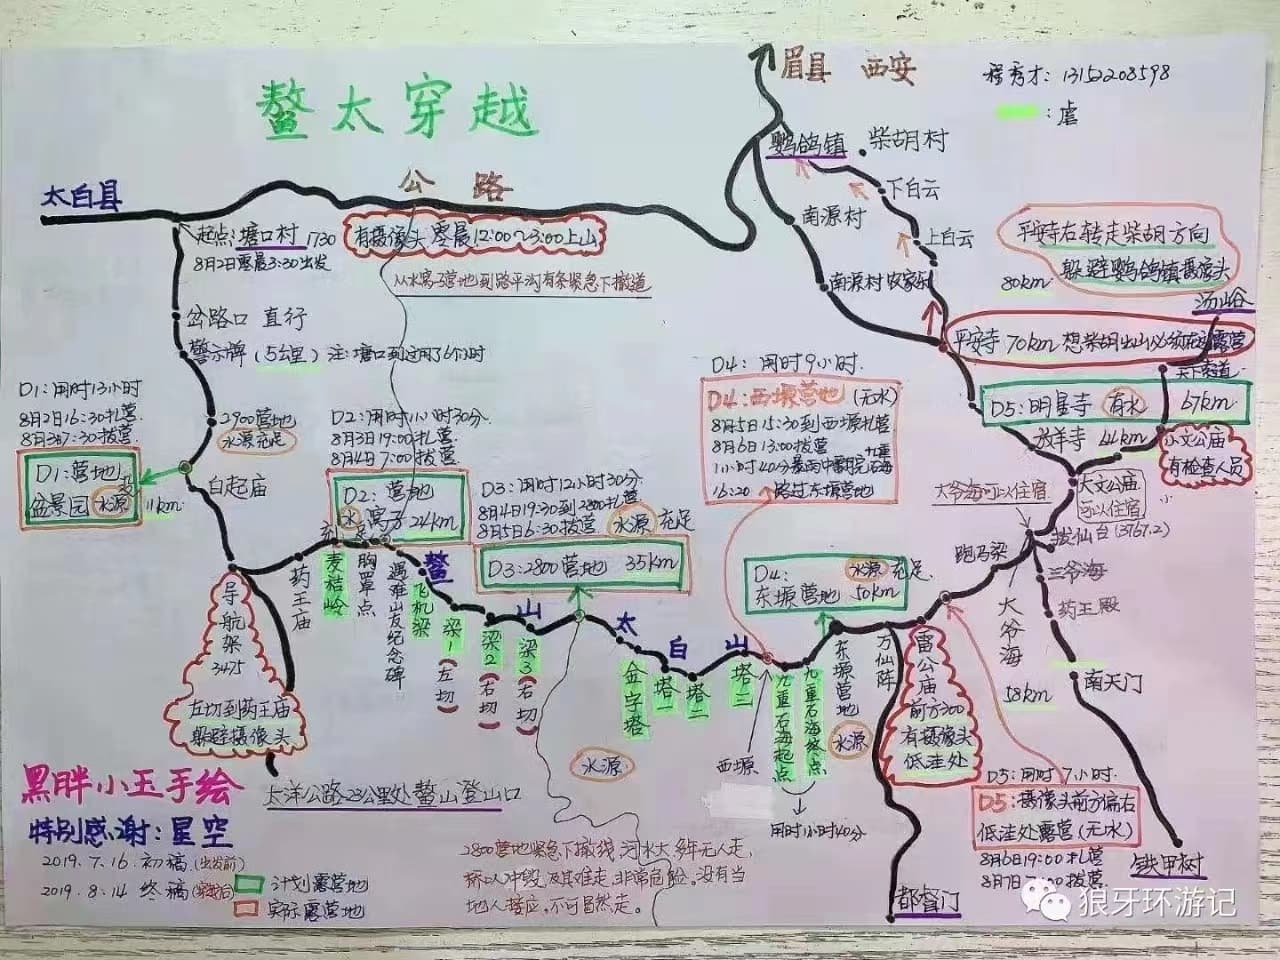 鳌太穿越
眉县 西安
程秀才：13152208598
：虐
太白县
公路
鹦鸽镇
柴胡村
下白云
上白云
南源村
南源村农家乐
起点：塘口村 1730
8月2日凌晨3:30出发
有摄像头 凌晨12:00~3:00上山
从水窝子营地到路平沟有条紧急下撤道
平安寺右转走柴胡方向
躲避鹦鸽镇摄像头
80km
汤峪
平安寺 70km
岔路口 直行
警示牌（5公里）注：塘口到这用了6个小时
D1：用时13小时
8月2日16:30扎营
8月3日7:30拔营
2900营地
水源充足
D1：营地
盆景园 水源
11km
白起庙
D2：用时11小时30分
8月3日19:00扎营
8月4日7:00拔营
D2：营地
水窝子 24km
D3：用时12小时30分
8月4日19:30到2800扎营
8月5日6:30拔营 水源充足
D3：2800营地 35km
D4：用时9小时
D4：西塬营地（无水）
8月5日15:30到西塬扎营
8月6日13:00拔营
16:20 路过东塬营地
D5：明星寺 有水 67km
放羊寺 64km
小文公庙
有检查人员
大文公庙
可以住宿
大爷海可以住宿
拔仙台（3767.2）
跑马梁
三爷海
药王殿
大爷海
58km
南天门
铁甲树
D4：
东塬营地 50km
水源充足
导航架
3475
左切到药王庙
躲避摄像头
药王庙
麦秸岭
胸罩点
遇难山友纪念碑
鳌山太白山
飞机梁
梁1（左切）
梁2（右切）
梁3（右切）
金字塔
塔一
塔二
塔三
西塬
九重石海起点
九重石海终点
用时1小时40分
东塬营地
水源
万仙阵
雷公庙
前方300
有摄像头
低洼处
水源
D5：用时7小时
D5：摄像头前方偏右
低洼处露营（无水）
8月6日19:00扎营
都督门
太洋公路23公里处鳌山登山口
2800营地紧急下撤线 河水大 多年无人走，
桥以冲毁 及其难走，非常危险。没有当
地人接应，不可冒然走。
黑胖小玉手绘
特别感谢：星空
2019.7.16.初稿（出发前）
2019.8.14 终稿
计划露营地
实际露营地
狼牙环游记